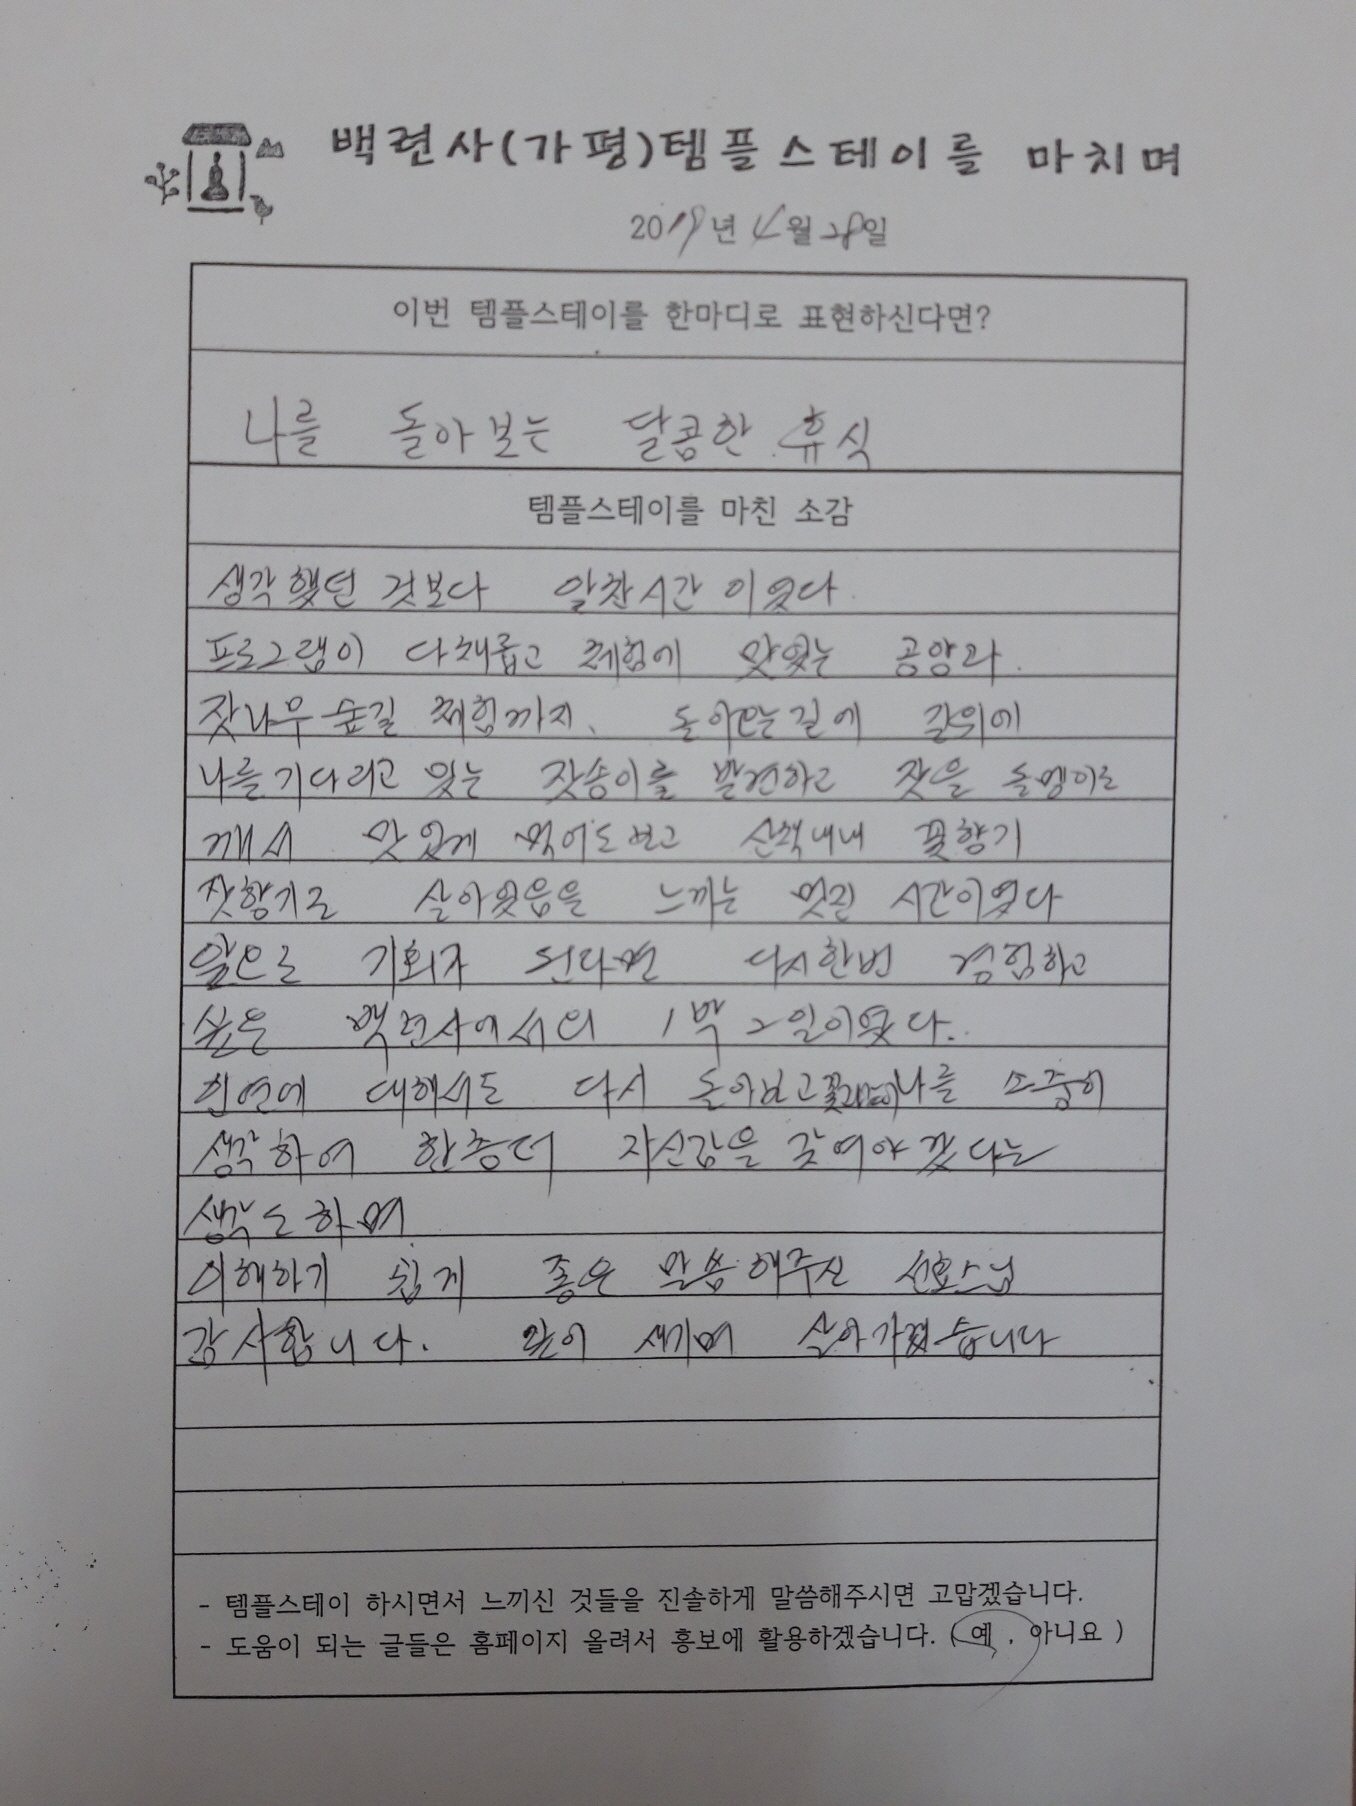 백련사(가평)템플스테이를 마치며
2019년 4월 28일
이번 템플스테이를 한마디로 표현하신다면?
나를 돌아보는 달콤한 휴식
템플스테이를 마친 소감
생각했던 것보다 알찬시간 이었다.
프로그램이 다채롭고 체험에 맛있는 공양과
잣나무숲길 체험까지. 돌아오는길에 길위에
나를기다리고 있는 잣송이를 발견하고 잣을 돌멩이로
깨서 맛있게 먹어도보고 산책내내 꽃향기
잣향기로 살아있음을 느끼는 멋진 시간이었다
앞으로 기회가 된다면 다시한번 경험하고
싶은 백련사에서의 1박 2일이었다.
인연에 대해서도 다시 돌아보고 나를 소중히
생각하여 한층더 자신감을 갖여야 겠다는
생각도하며
이해하기 쉽게 좋은 말씀해주신 선효스님
감사합니다. 깊이 새기며 살아가겠습니다
- 템플스테이 하시면서 느끼신 것들을 진솔하게 말씀해주시면 고맙겠습니다.
- 도움이 되는 글들은 홈페이지 올려서 홍보에 활용하겠습니다. ( 예 , 아니요 )